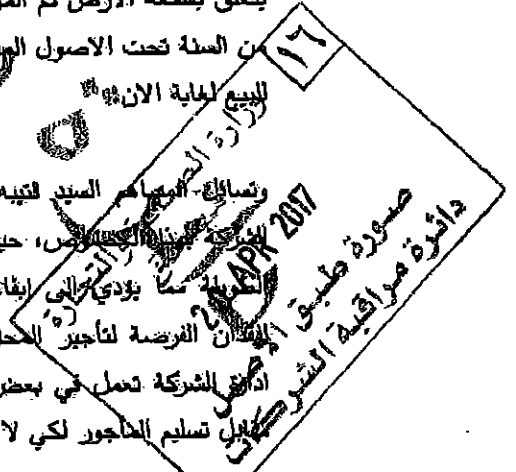 يتعلق بقطعة الأرض تم
من السنة تحت الاصول
للبيع لغاية الان
وتسائل المساهم السيد قتيبه
الشركة بهذا الخصوص، حيـ
الطويلة مما يؤدي الى إبقا
لفقدان الفرصة لتأجير المحلـ
ادارة الشركة تعمل في بعضـ
مقابل تسليم المأجور لكي لا
١٦
وزارة الصناعة والتجارة
APR 2017
صورة طبق الأصل
دائرة مراقبة الشركات